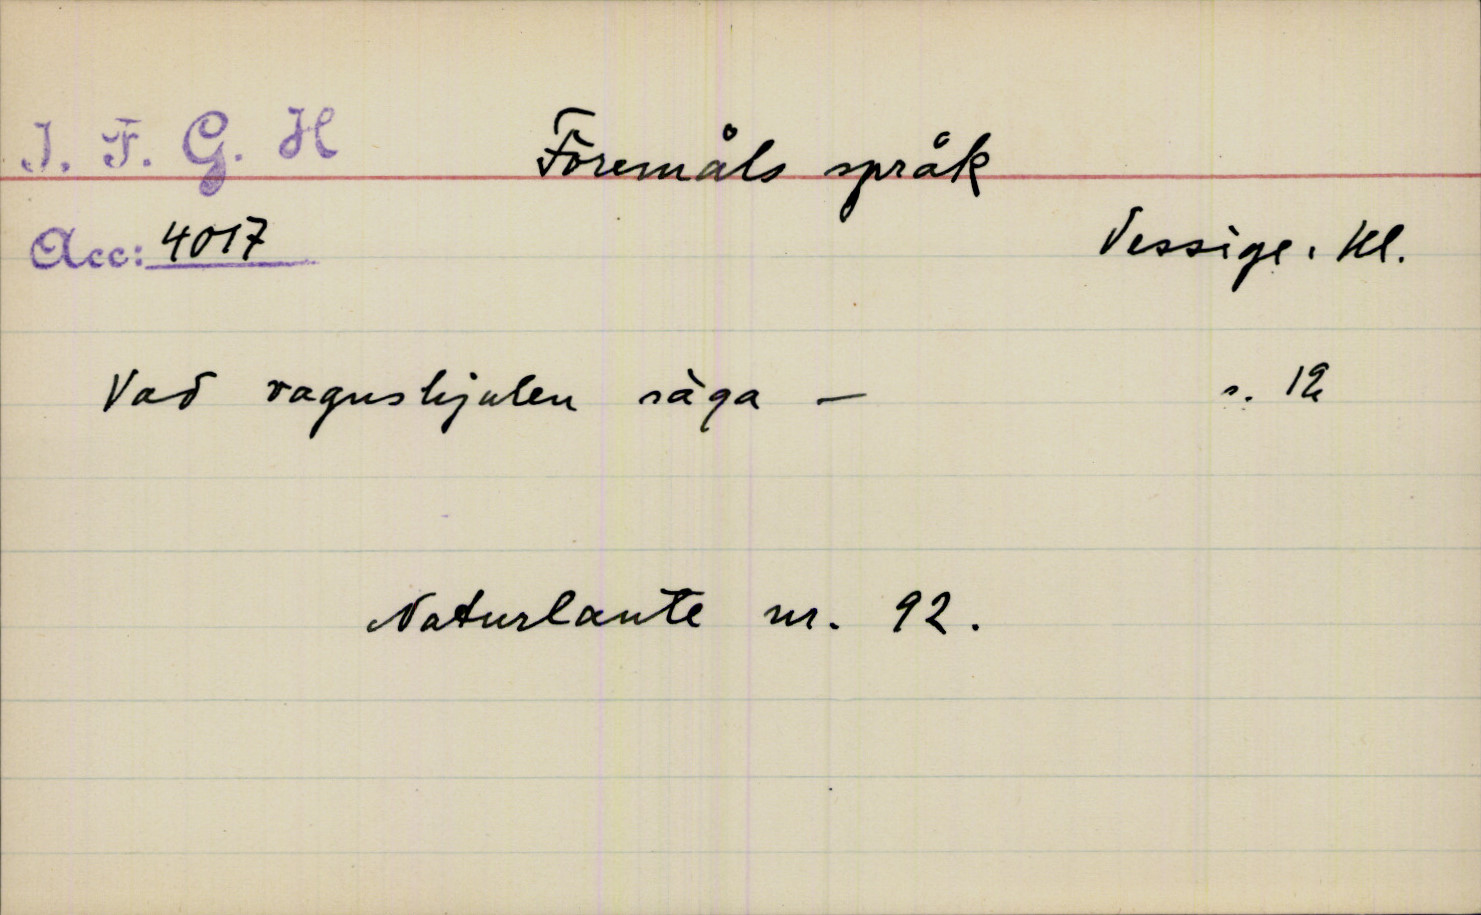 I. F. G. H
Föremåls språk
Acc: 4017
Vessige. Hl.
Vad vagnshjulen säga — s. 12
Naturlaute nr. 92.